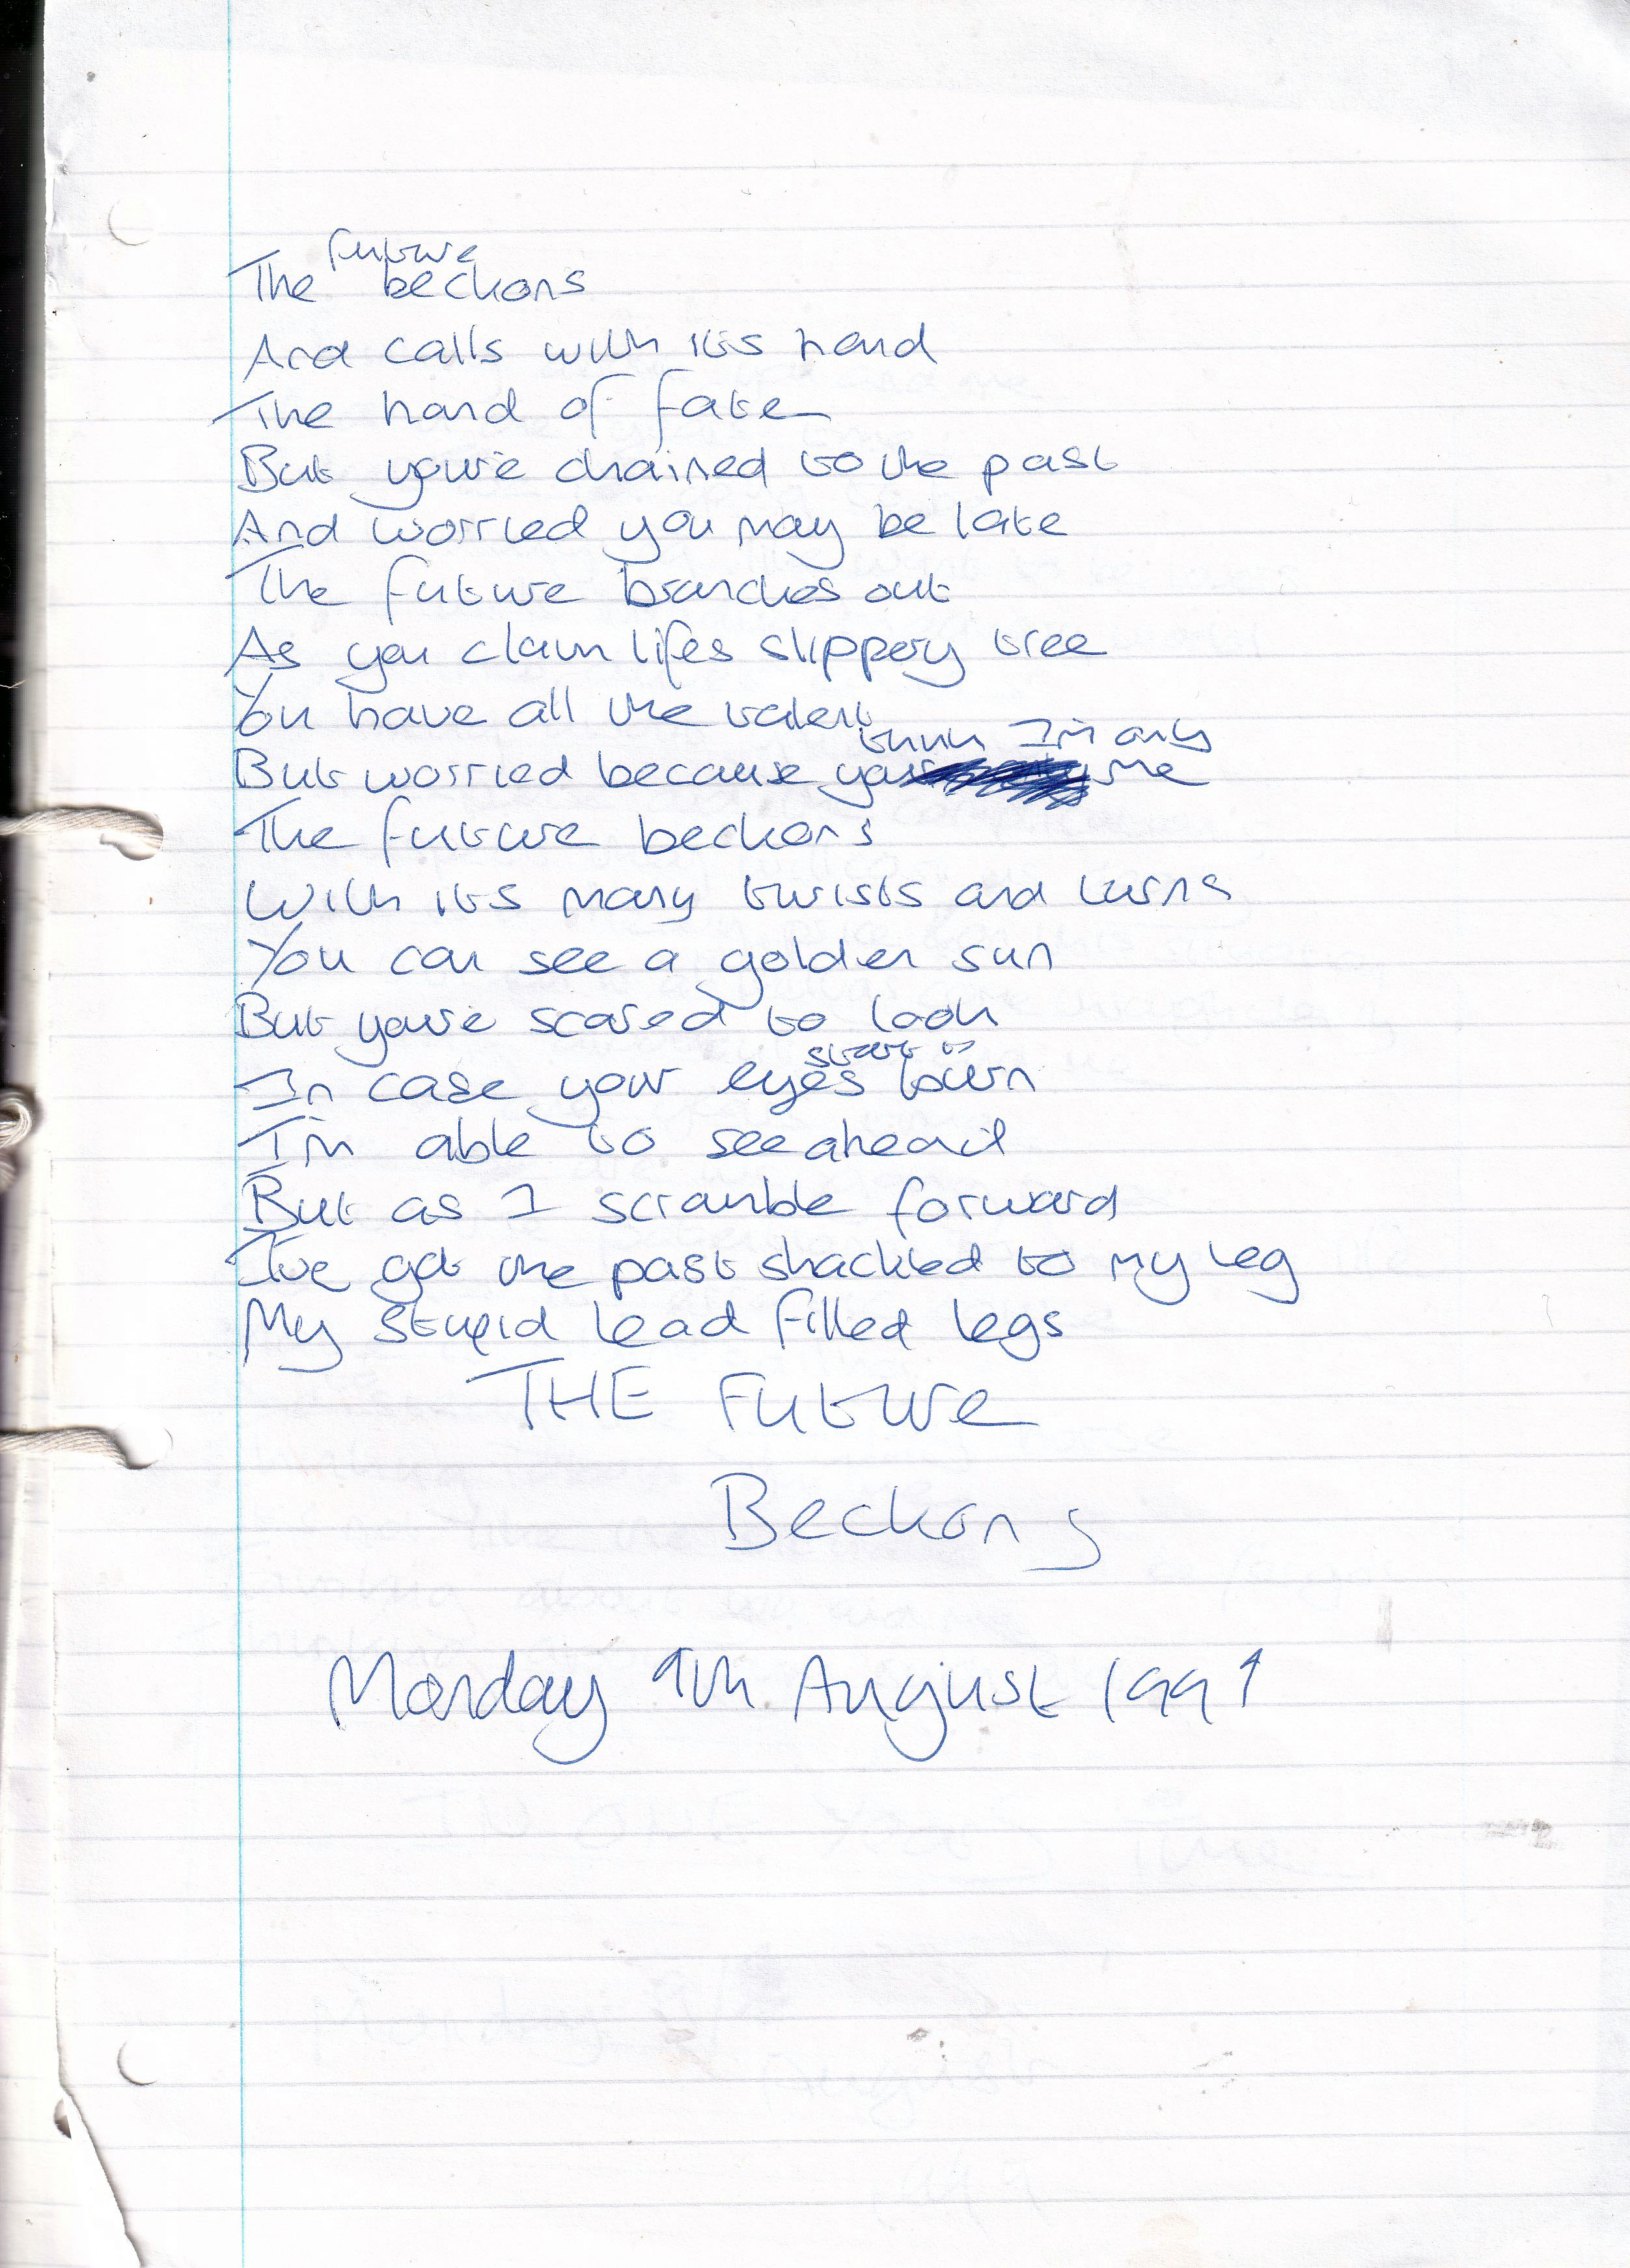 The future beckons
And calls with its hand
The hand of fate
But you're chained to the past
And worried you may be late
The future branches out
As you claim lifes slippery tree
You have all the talent
But worried because you think I'm only me
The future beckons
With its many twists and turns
You can see a golden sun
But you're scared to look
In case your eyes start to burn
I'm able to see ahead
But as I scramble forward
I've got the past shackled to my leg
My stupid lead filled legs
THE Future
Beckons
Monday 9th August 1999